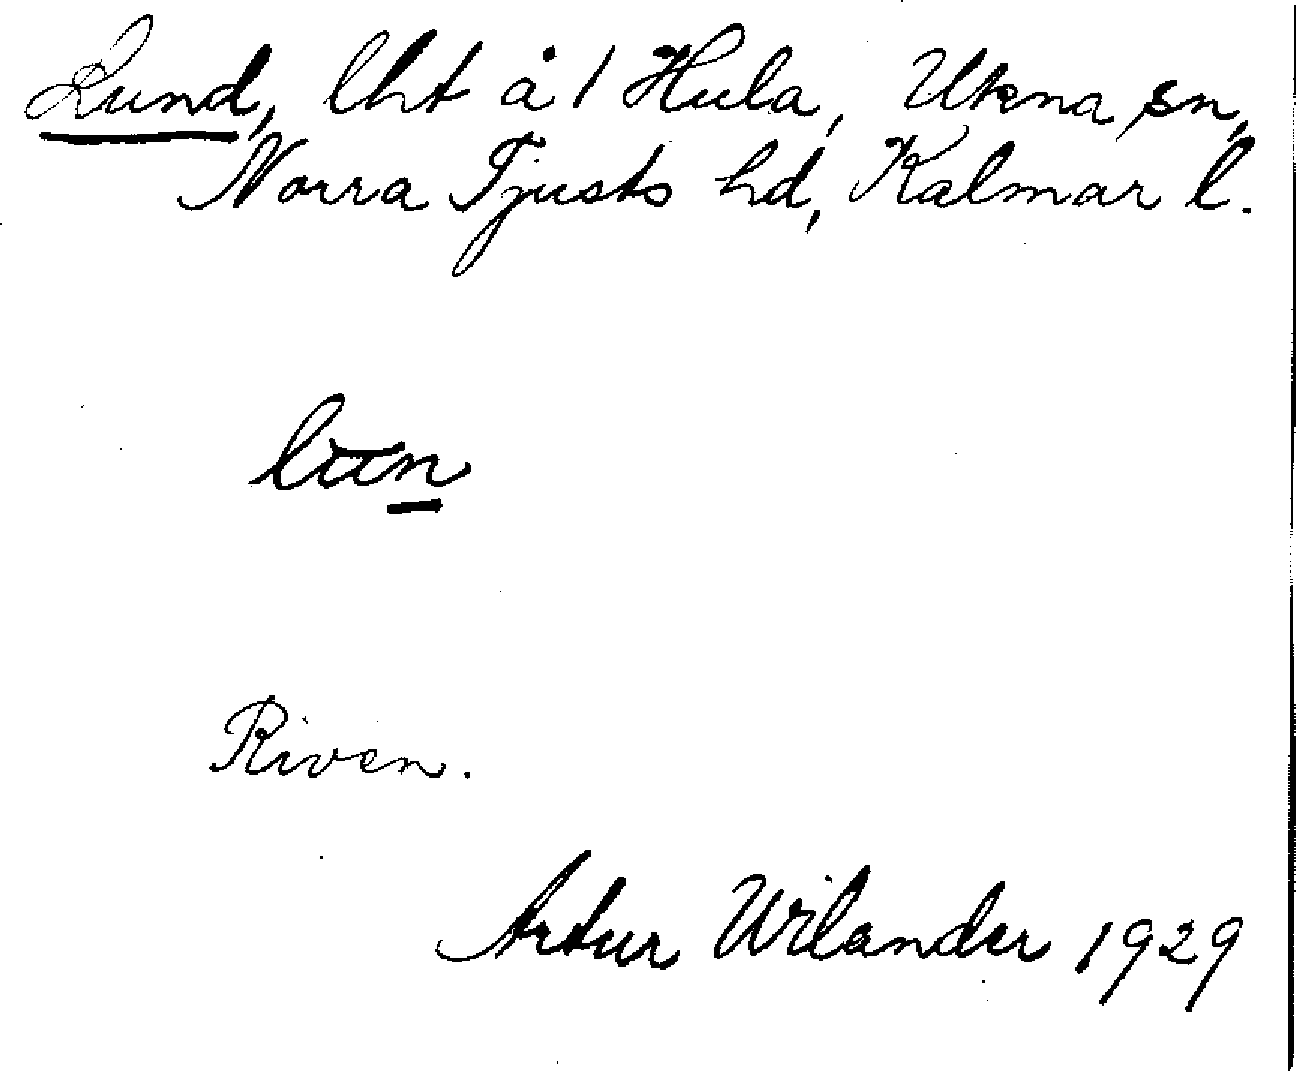 Lund, lht å 1 Hula, Ukna sn,
Norra Tjusts hd, Kalmar l.
Riven.
Artur Wilander 1929